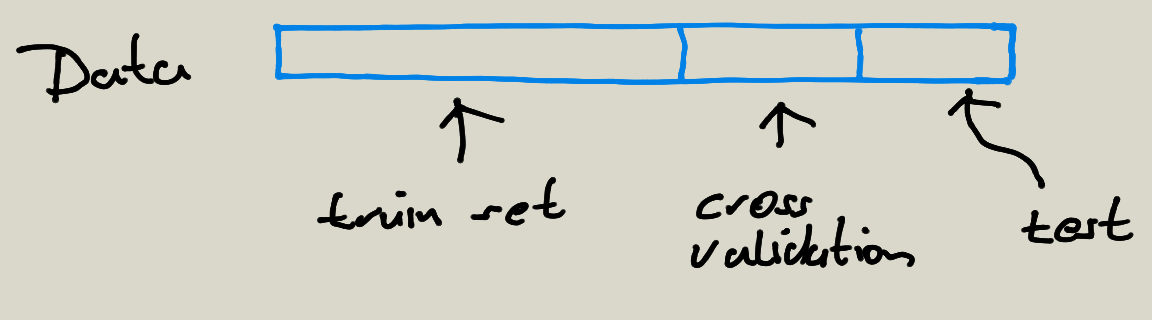 Data
train set
cross
validation
test